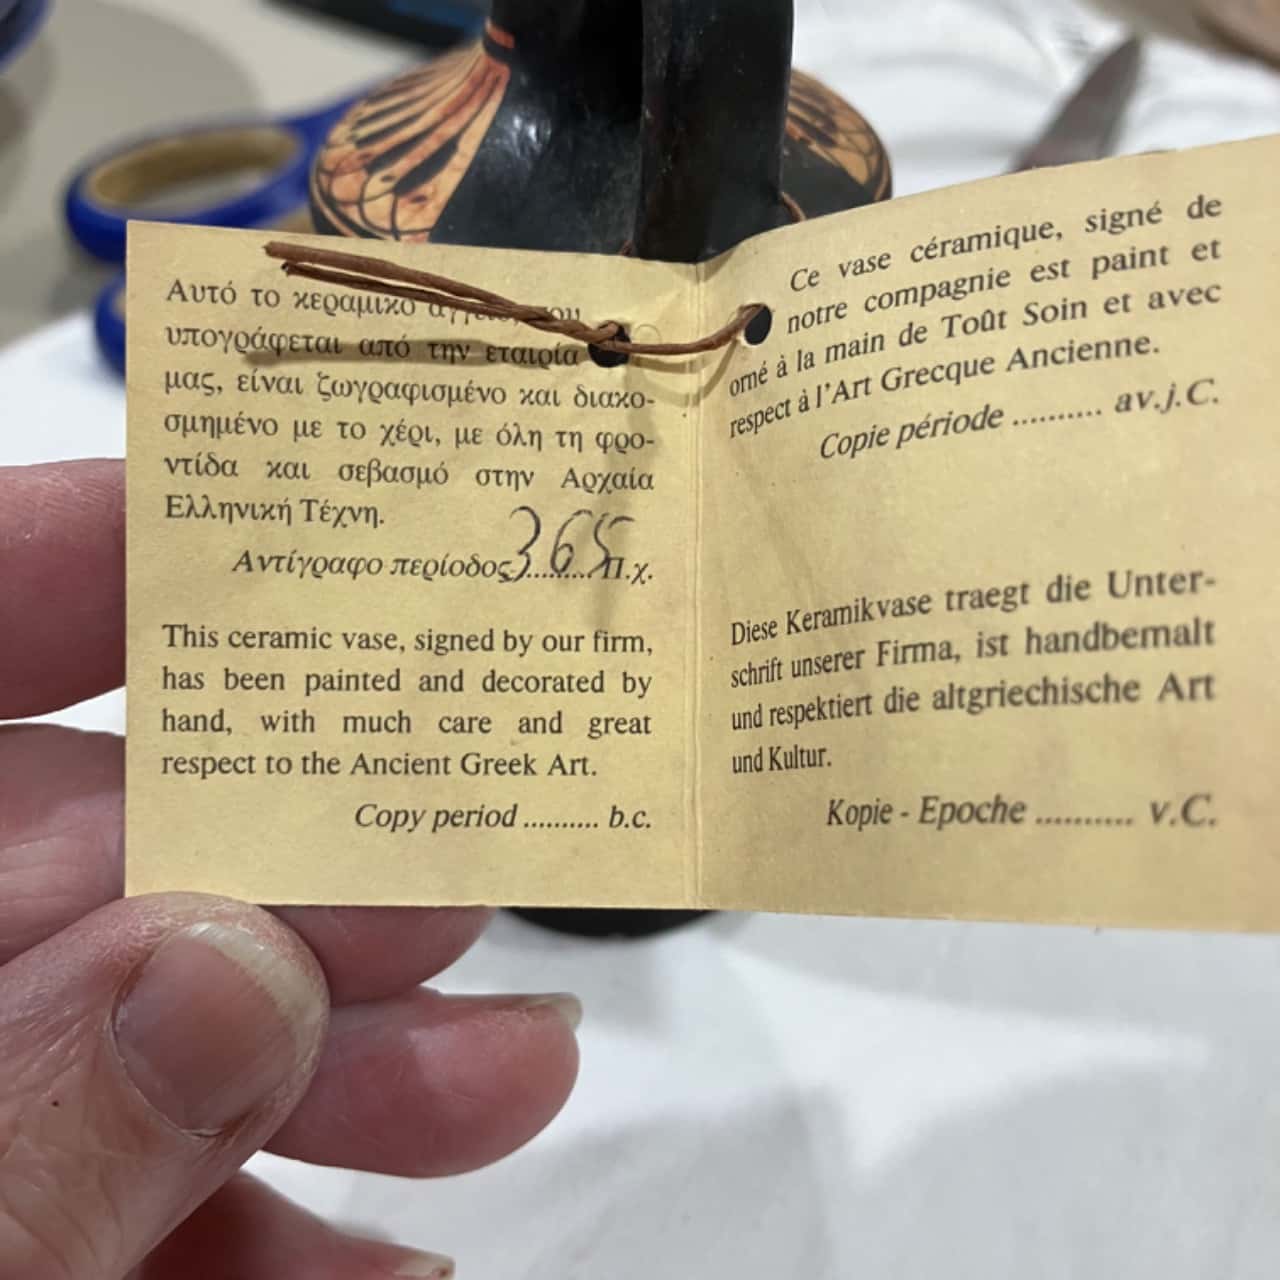 Αυτό το κεραμικό
υπογράφεται από την εταιρία
μας, είναι ζωγραφισμένο και διακο-
σμημένο με το χέρι, με όλη τη φρο-
ντίδα και σεβασμό στην Αρχαία
Ελληνική Τέχνη.
Αντίγραφο περίοδος 365 Π.χ.
This ceramic vase, signed by our firm,
has been painted and decorated by
hand, with much care and great
respect to the Ancient Greek Art.
Copy period .......... b.c.
Ce vase céramique, signé de
notre compagnie est paint et
orné à la main de Toût Soin et avec
respect à l'Art Grecque Ancienne.
Copie période .......... av.j.C.
Diese Keramikvase traegt die Unter-
schrift unserer Firma, ist handbemalt
und respektiert die altgriechische Art
und Kultur.
Kopie - Epoche .......... v.C.